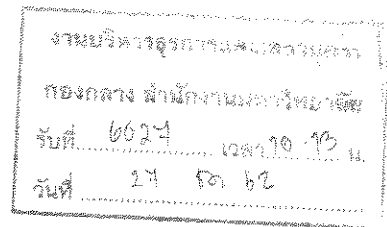 งานบริหารธุรการและสารบรรณ
กองกลาง สำนักงานมหาวิทยาลัย
รับที่ 6627 เวลา 10.13 น.
วันที่ 27 ธค 62